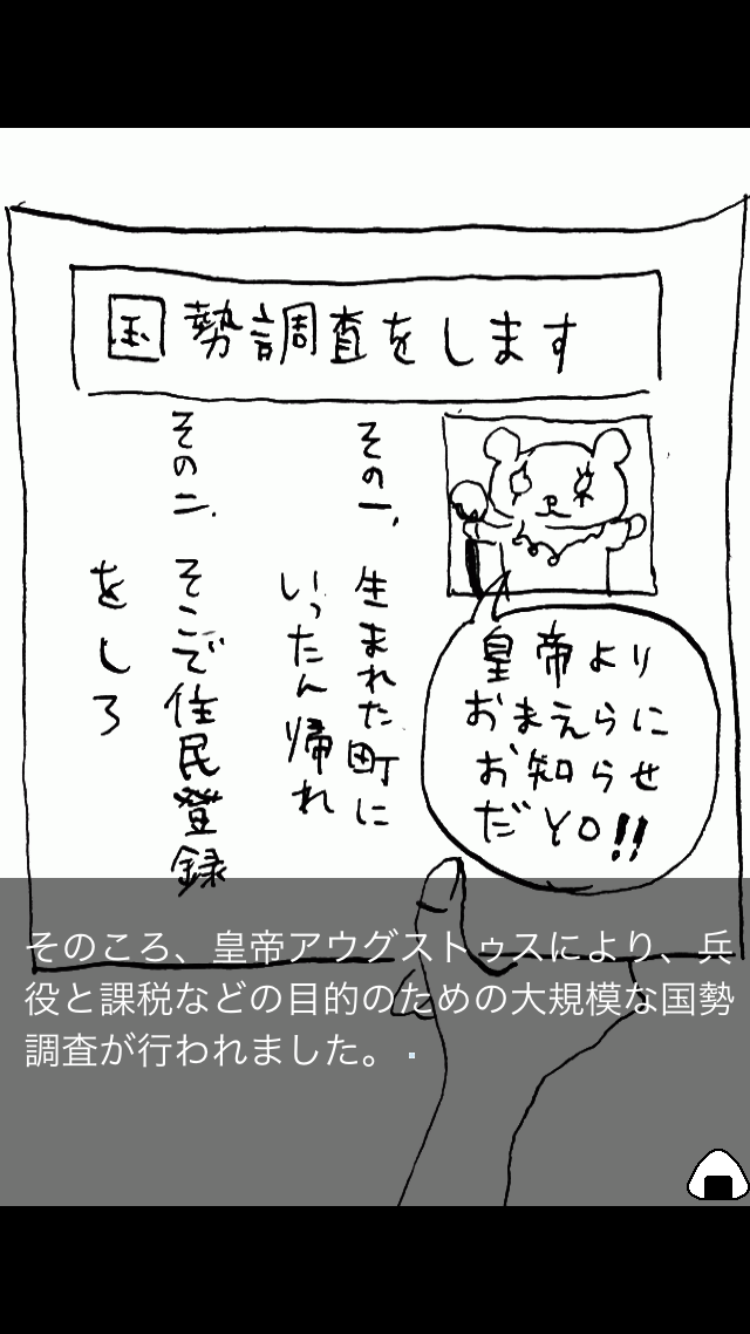 国勢調査をします
皇帝より
おまえらに
お知らせ
だYO!!
その一、生まれた町に
いったん帰れ
その二、そこで住民登録
をしろ
そのころ、皇帝アウグストゥスにより、兵
役と課税などの目的のための大規模な国勢
調査が行われました。